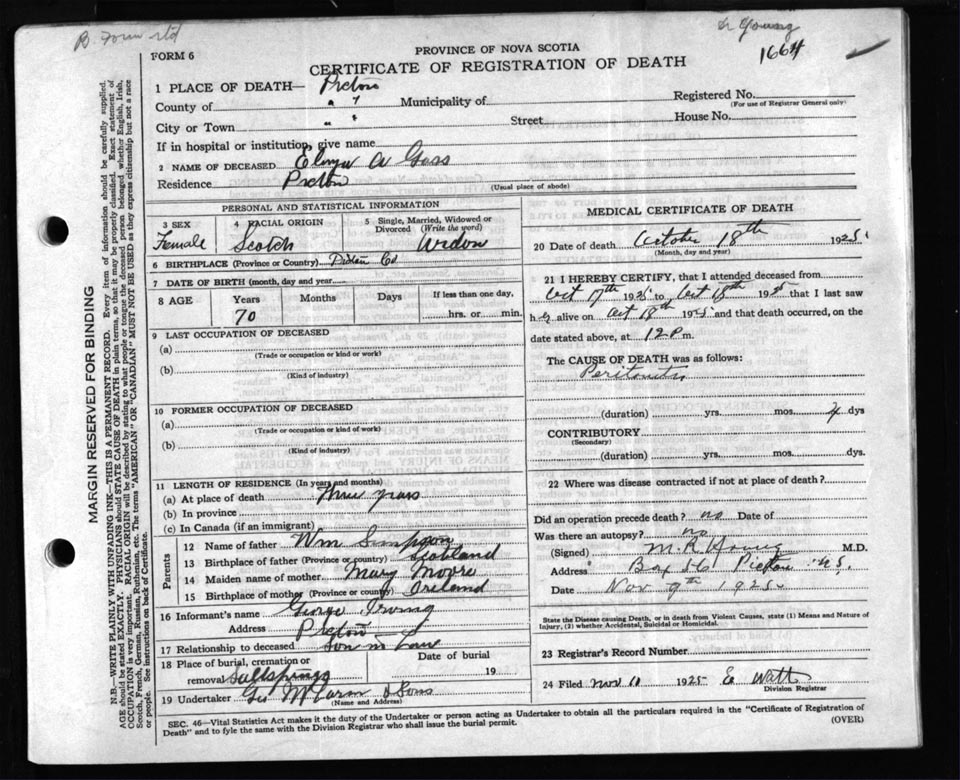 Dr Young
1664
FORM 6
PROVINCE OF NOVA SCOTIA
CERTIFICATE OF REGISTRATION OF DEATH
1 PLACE OF DEATH— Pictou
County of " " Municipality of Registered No.
(For use of Registrar General only)
City or Town " " Street House No.
If in hospital or institution, give name
2 NAME OF DECEASED A Gass
Residence Pictou
(Usual place of abode)
MARGIN RESERVED FOR BINDING
N.B.—WRITE PLAINLY WITH UNFADING INK—THIS IS A PERMANENT RECORD. Every item of information should be carefully supplied.
AGE should be stated EXACTLY. PHYSICIANS should STATE CAUSE OF DEATH in plain terms, so that it may be properly classified. Exact statement of
OCCUPATION is very important. RACIAL ORIGIN will be described by stating to what people or tongue the deceased person belonged whether English, Irish,
Scotch, French, German, Russian, Ruthenian, etc. The terms "AMERICAN" OR "CANADIAN" MUST NOT BE USED as they express citizenship but not a race
or people. See instructions on back of Certificate.
PERSONAL AND STATISTICAL INFORMATION
3 SEX 4 RACIAL ORIGIN 5 Single, Married, Widowed or
Divorced (Write the word)
Female Scotch Widow
6 BIRTHPLACE (Province or Country) Pictou Co
7 DATE OF BIRTH (month, day and year)
8 AGE Years Months Days If less than one day,
70 hrs. or min.
9 LAST OCCUPATION OF DECEASED
(a)
(Trade or occupation or kind or work)
(b)
(Kind of industry)
10 FORMER OCCUPATION OF DECEASED
(a)
(Trade or occupation or kind of work)
(b)
(Kind of industry)
11 LENGTH OF RESIDENCE (In years and months)
(a) At place of death three years
(b) In province
(c) In Canada (if an immigrant)
Parents
12 Name of father Wm Simpson
13 Birthplace of father (Province or country) Scotland
14 Maiden name of mother Mary Moore
15 Birthplace of mother (Province or country) Ireland
16 Informant's name George Irving
Address Pictou
17 Relationship to deceased Son in law
18 Place of burial, cremation or Date of burial
removal Saltsprings 19
19 Undertaker Geo & Sons
(Name and Address)
MEDICAL CERTIFICATE OF DEATH
20 Date of death October 18th 1925
(Month, day and year)
21 I HEREBY CERTIFY, that I attended deceased from
Oct 17th 1925 to Oct 18th 1925 that I last saw
her alive on Oct 18th 1925 and that death occurred, on
date stated above, at 12 P m.
The CAUSE OF DEATH was as follows:
Peritonitis
(duration) yrs. mos. dys
CONTRIBUTORY
(Secondary)
(duration) yrs. mos. dys.
22 Where was disease contracted if not at place of death?
Did an operation precede death? no Date of
Was there an autopsy? no
(Signed) M.R. M.D.
Address Box 56 Pictou N.S.
Date Nov 9th 1925
State the Disease causing Death, or in death from Violent Causes, state (1) Means and Nature of
Injury, (2) whether Accidental, Suicidal or Homicidal.
23 Registrar's Record Number
24 Filed Nov 10 1925 E Watt
Division Registrar
SEC. 46—Vital Statistics Act makes it the duty of the Undertaker or person acting as Undertaker to obtain all the particulars required in the "Certificate of Registration of
Death" and to fyle the same with the Division Registrar who shall issue the burial permit.
(OVER)